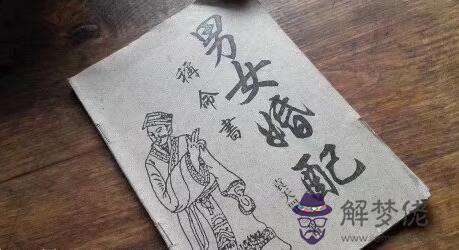 男女婚配
稱命書
解梦佬
jiemenglao.com